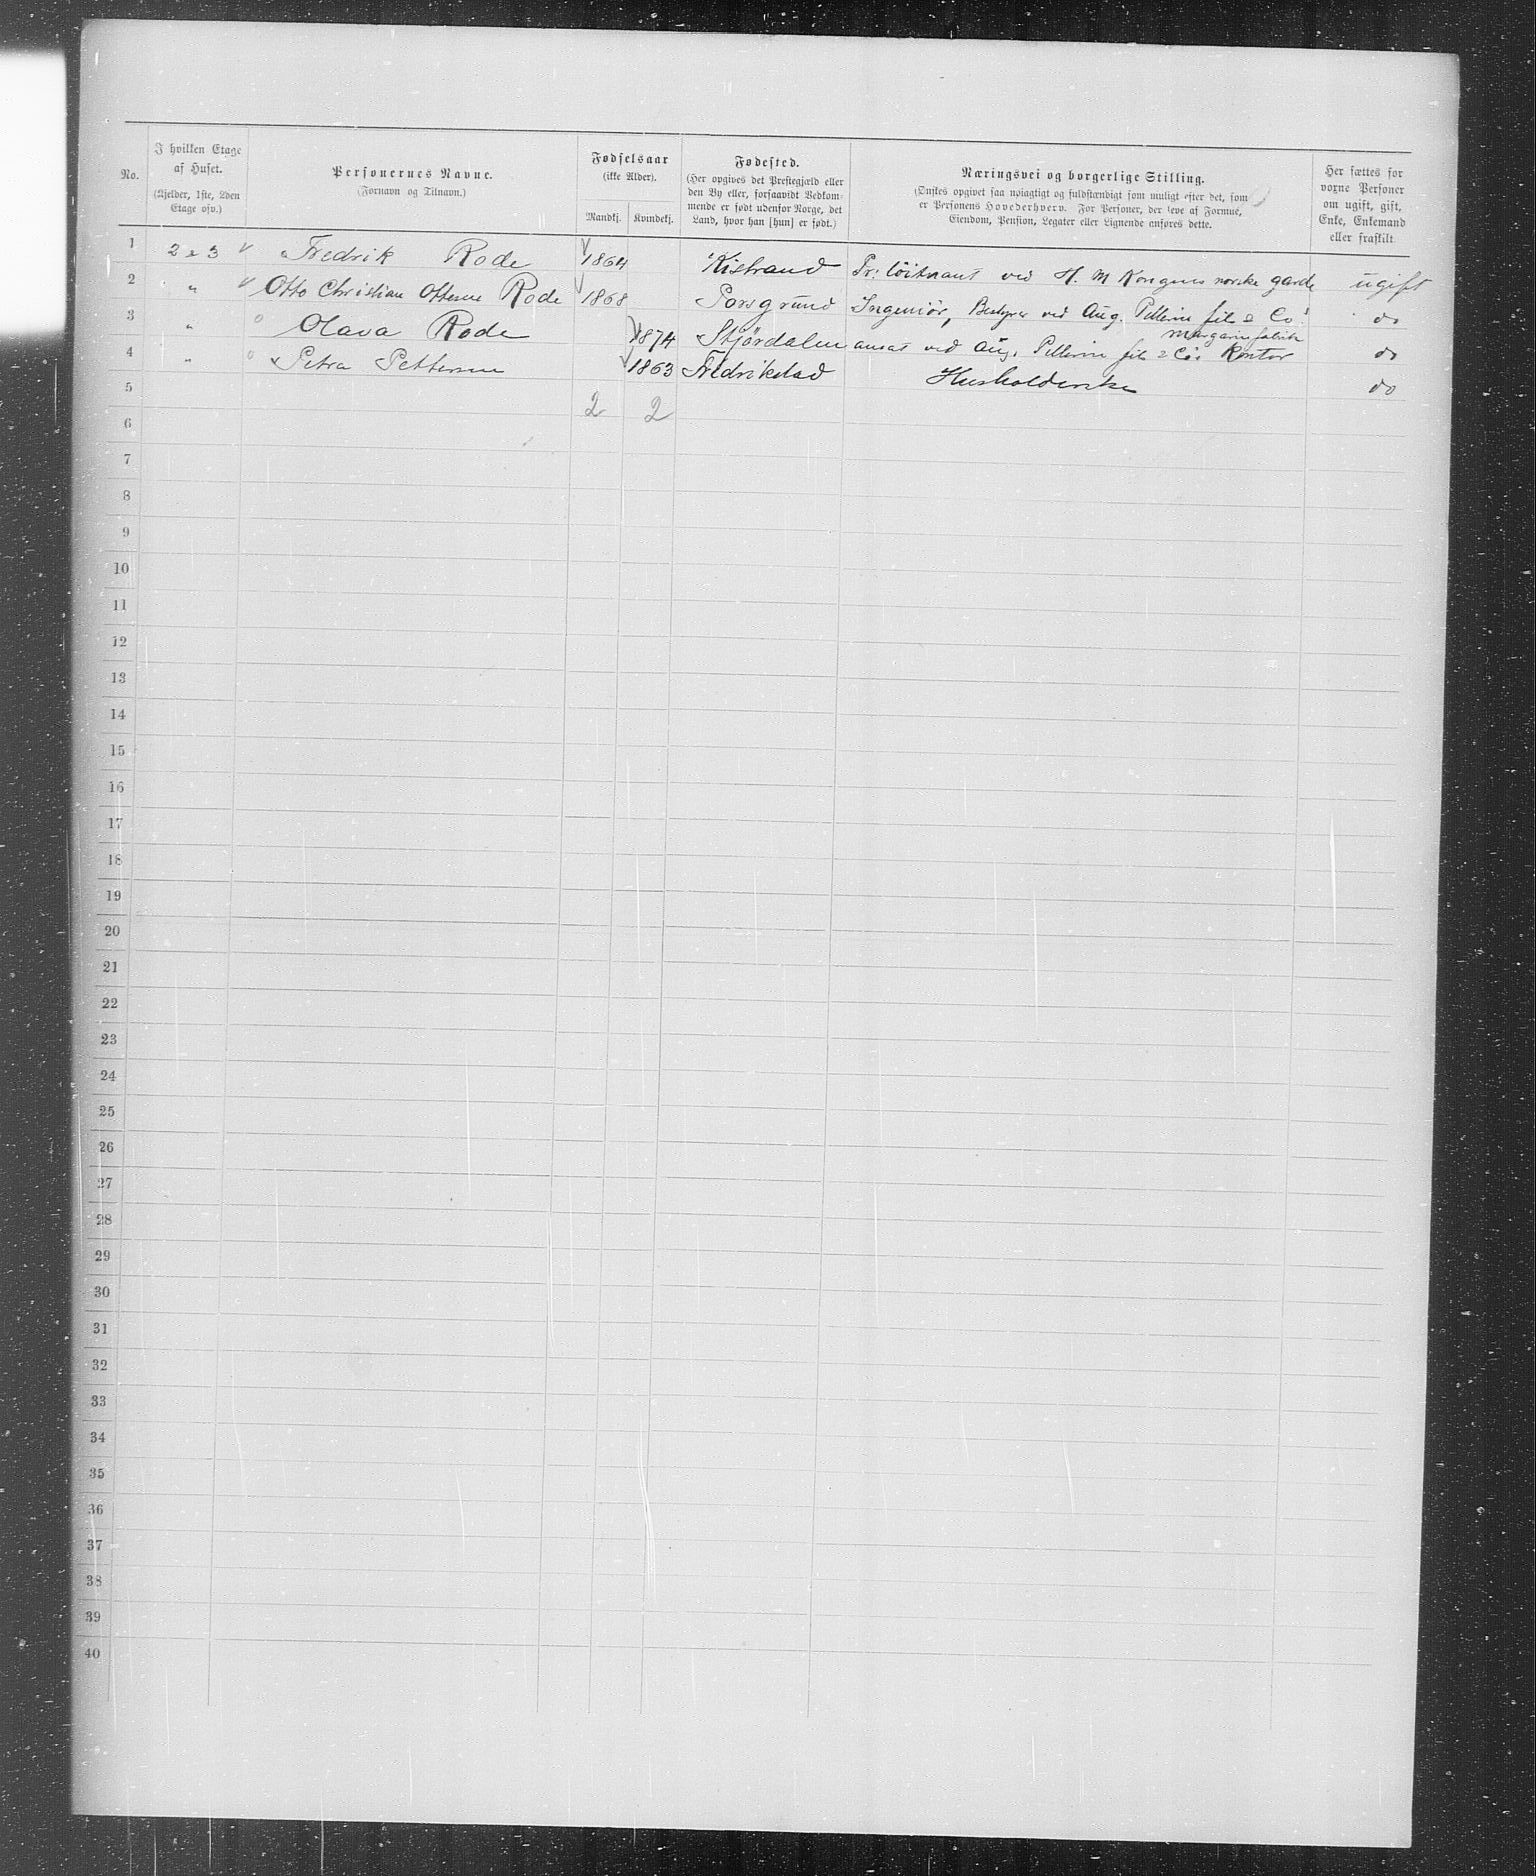 No.
I hvilken Etage
af Huset.
(Kjelder, 1ste, 2den
Etage osv.)
Personernes Navne.
(Fornavn og Tilnavn.)
Fødselsaar
(ikke Alder).
Mandkj.
Kvindekj.
Fødested.
(Her opgives det Prestegjæld eller
den By eller, forsaavidt Vedkom-
mende er født udenfor Norge, det
Land, hvor han [hun] er født.)
Næringsvei og borgerlige Stilling.
(Ønskes opgivet saa nøiagtigt og fuldstændigt som muligt efter det, som
er Personens Hovederhverv. For Personer, der leve af Formue,
Eiendom, Pension, Legater eller Lignende anføres dette.
Her sættes for
voxne Personer
om ugift, gift,
Enke, Enkemand
eller fraskilt
1 2 & 3 Fredrik Rode 1864 Kistrand Pr: löitnant ved H. M Kongens norske garde ugift
2 " Otto Christian Ottesen Rode 1868 Porsgrund Ingeniör, Bestyrer ved Aug. Pellerin fils & Co: do
Margarinfabrik
3 " Olava Rode 1874 Stjördalen ansat ved Aug. Pellerin fils & Co's Kontor do
4 " Petra Pettersen 1863 Fredrikstad Husholderske do
5 2 2
6
7
8
9
10
11
12
13
14
15
16
17
18
19
20
21
22
23
24
25
26
27
28
29
30
31
32
33
34
35
36
37
38
39
40